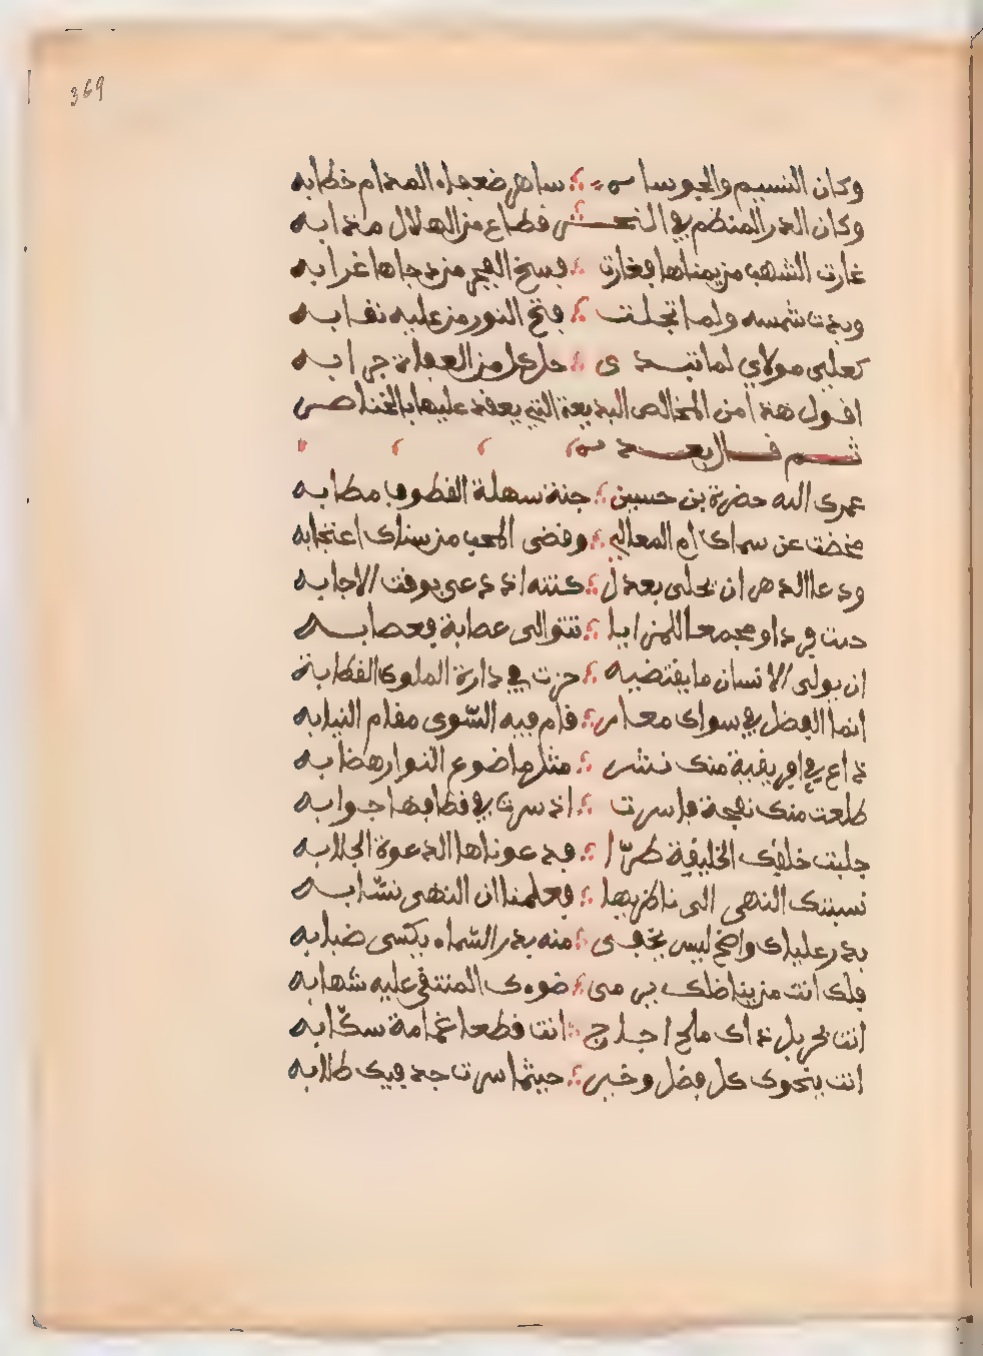 369
وكان النسيم والجو ساس ؛ ساهر ضعفاه المدام خطابه
وكان الدر المنظم في النحس قطاع من الهلال مذابه
غارت الشهب من يمناها فغارت ؛ فسخ الفجر من دجاها غرابه
وبدت شمسه ولما تجلت ؛ فتح النور من عليه نقابه
كعلي مولاي لما تبدى ؛ حل كل من العفاة جرابه
اقول هذا من المخالص البديعة التي يعقد عليها بالخناصر
ثم قال بعد
عمرك الله حضرة بن حسين ؛ جنة سهلة القطوف مطابه
مخضت عن سماك ام المعالي ؛ وقضى المحب من سناك اعتجابه
ودعا الدهر ان تحلى بعدل ؛ كنته اذ دعى بوقت الاجابه
دمت فردا ومجمعا للمزايا ؛ تتوالى عصابة فعصابه
ان يولى الانسان ما يقتضيه ؛ حزت في دارة الملوك القطابة
انما الفضل في سواك معار ؛ قام فيه السّوى مقام النيابه
ذاع في افريقية منك نشر ؛ مثلما ضوع النوار هضابه
طلعت منك نفحة فاسرت ؛ اذ سرت في قطافها جوابه
جلبت خلقك الخليقة طرّا ؛ فدعوناها الدعوة الجلابه
نسبتك النهى الى ناظريها ؛ فعلمنا ان النهى نسّابه
بدر علياك واضح ليس يخفى ؛ منه بدر السّماء يكسى ضبابه
فلك انت من يناضلك يرمى ؛ ضوءك المنتقى عليه شهابه
انت بحر بل نداك مالح اجاج ؛ انت قطعا غمامة سكّابه
انت ينحوك كل فضل وخير ؛ حيثما سرت جد فيك طلابه